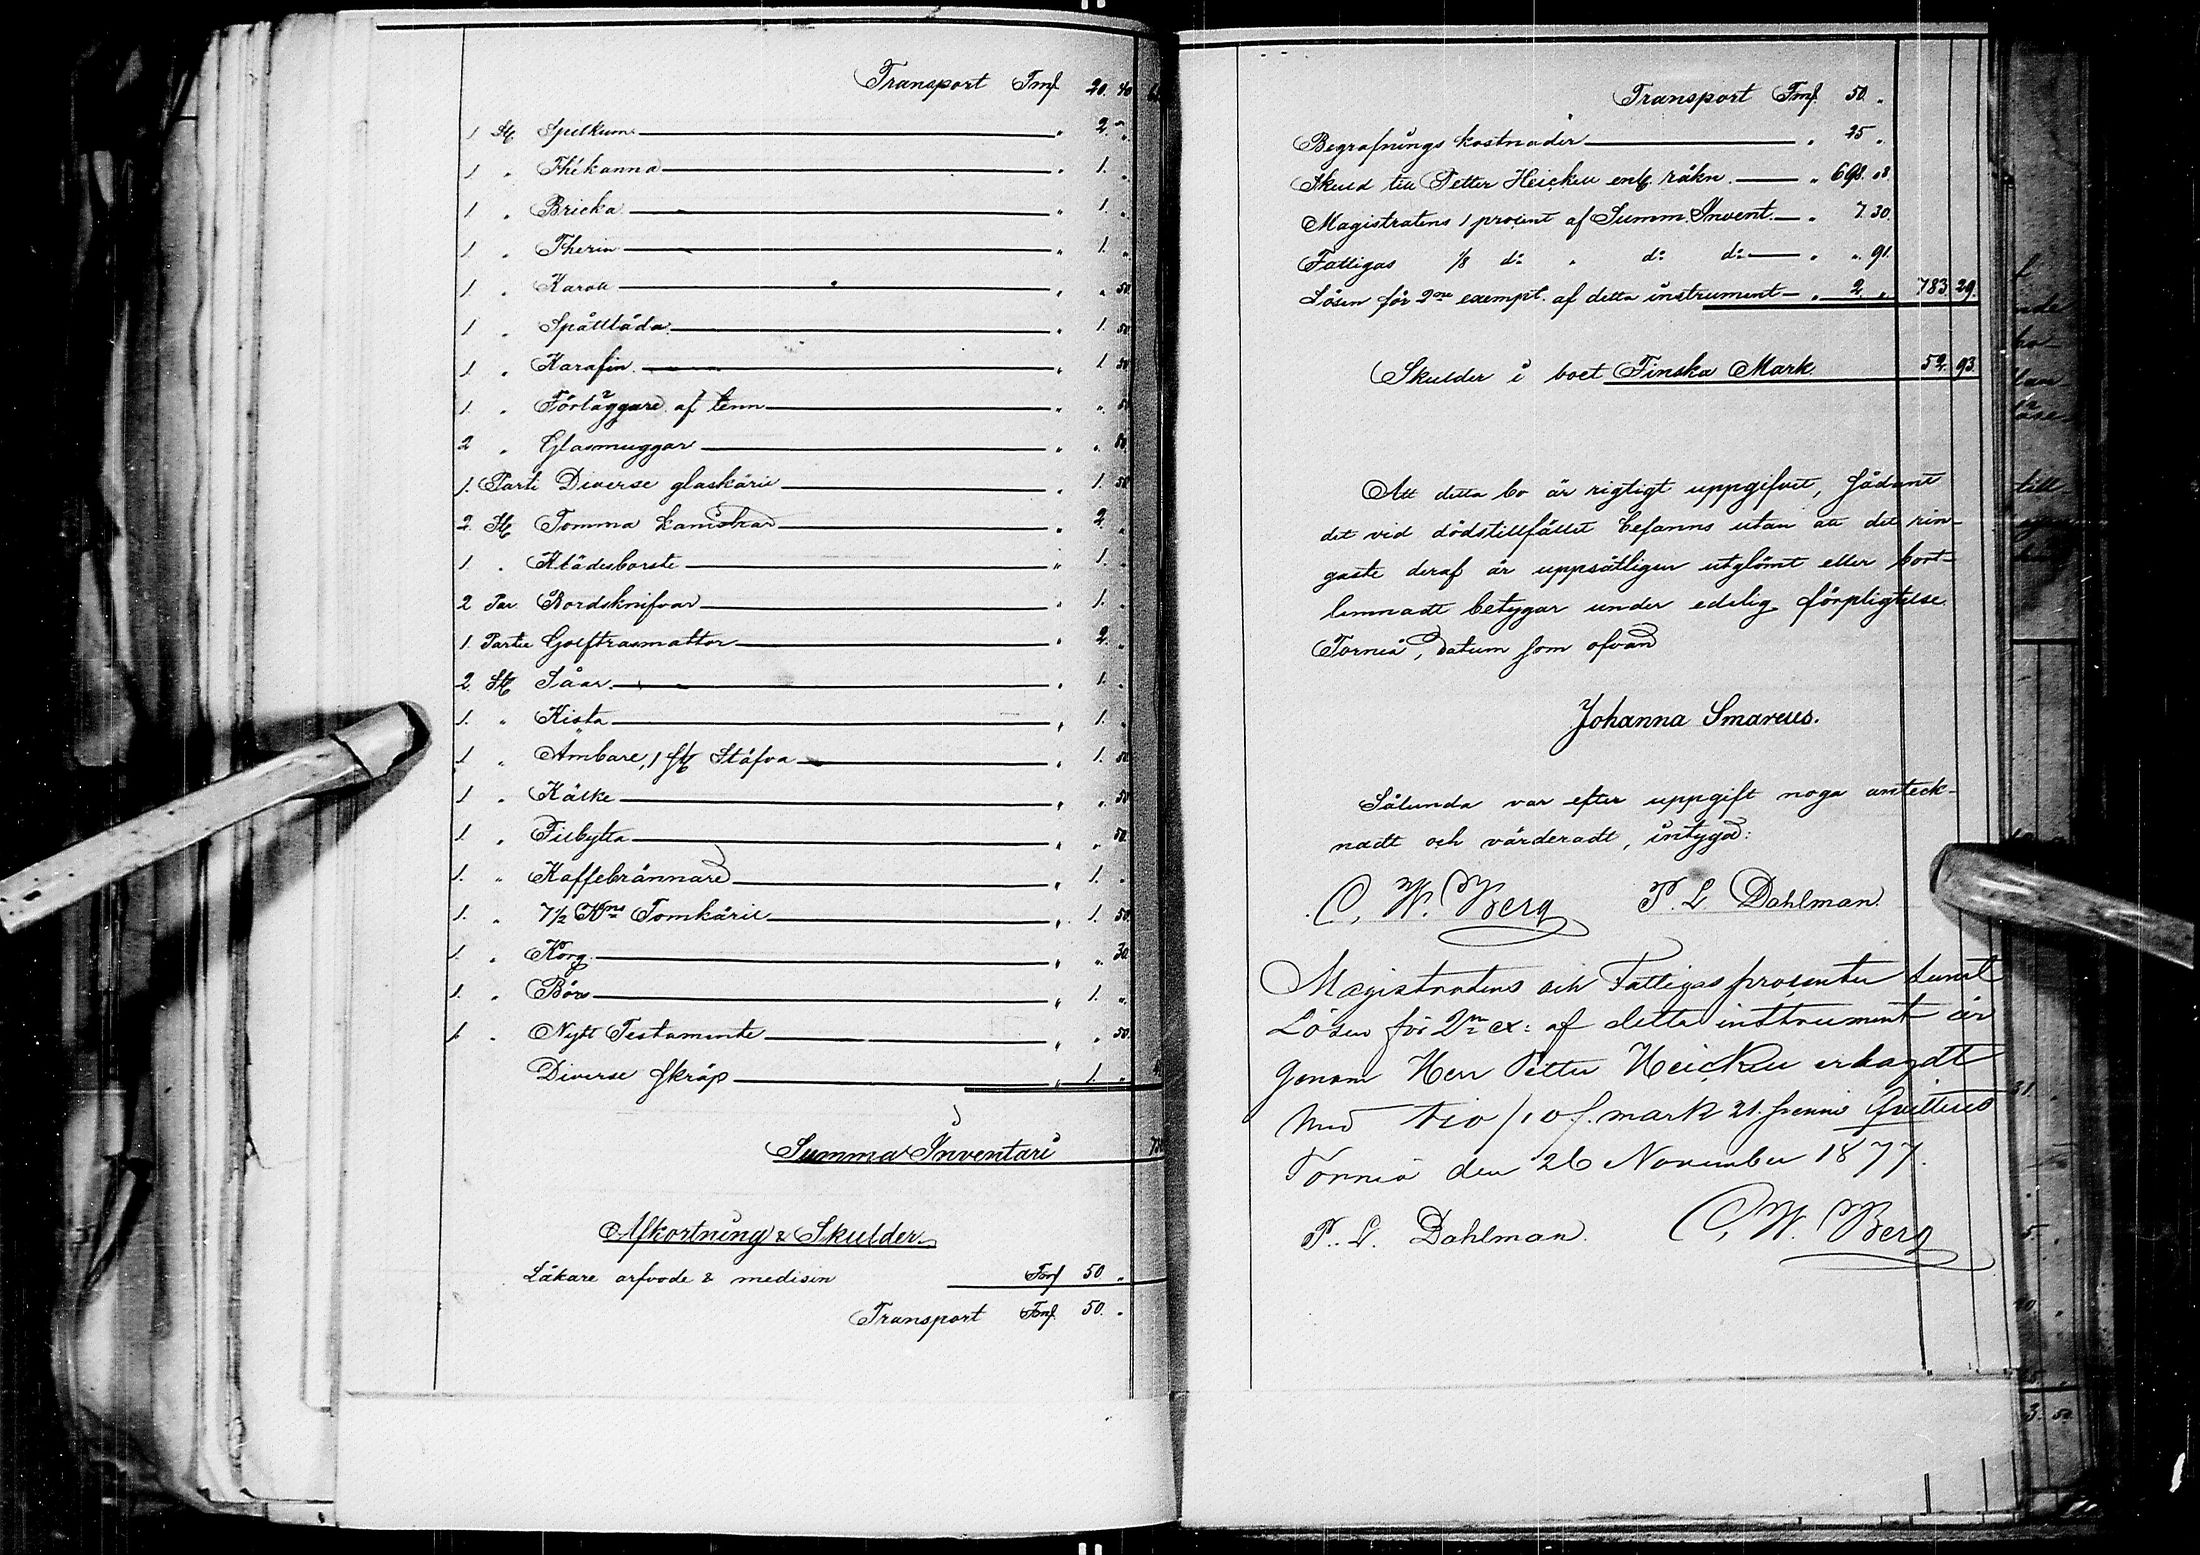 Transport Fmf 20. 40
1 St. Spilkum " 2. "
1 " Thékanna " 1. "
1 " Bricka " 1. "
1 " Therin " 1. "
1 " Karott " " 50
1 " Spottlåda " 1. 50
1 " Karafin " 1 50
1 " Förläggare af tenn " " 50
2 " Glasmuggar " " 50
1. Parti Diverse glaskäril " 1. 50
2. St. Tomma kanistrar " 2. "
1. " Klädesborste " 1. "
2 Par. Bordsknifvar " 1. "
1. Partie Golftrasmattor " 2. "
2. St. Såar " 1. "
1. " Kista " 1. "
1 " Ämbare, 1 St. Stäfva " 1. 50
1 " Kälke " " 50
1. " Filbytta " " 50
1. " Kaffebrännare " 1. "
1. " 7½ Kns Tomkäril " 1. 50
1. " Korg " " 30
1. " Börs " 1. "
1. " Nytt Testamente " " 50
Diverse skräp " 1. "
Summa Inventarii
Afkortning & Skulder
Läkare arfvode & medisin Fmf 50 "
Transport Fmf. 50. "
Transport Fmf. 50. "
Begrafnings kostnader " 25 "
Skuld till Petter Heickell enl. räkn. " 698. 08
Magistratens 1 procent af Summ. Invent. " 7. 30.
Fattigas 1/8 d:o " d:o d:o " " 91.
Lösen för 2ne exempl. af detta instrument " 2. " 783 29.
Skulder i boet Finska Mark. 52. 93.
Att detta bo är rigtigt uppgifvet, sådant
det vid dödstillfället befanns utan att det rin-
gaste deraf är uppsåtligen utglömt eller bort-
lemnadt betygar under edelig förpligtelse.
Torneå, datum som ofvan
Johanna Smareus.
Sålunda var efter uppgift noga anteck-
nadt och värderadt, intyga:
C. W. Berg P. L. Dahlman.
Magistratens och Fattigas procenter samt
Lösen för 2ne ex: af detta instrument är
genom Herr Petter Heickell erlagdt
med tio /10/. mark 21. penni Qvitteras
Torneå den 26 November 1877.
P. L. Dahlman. C. W. Berg